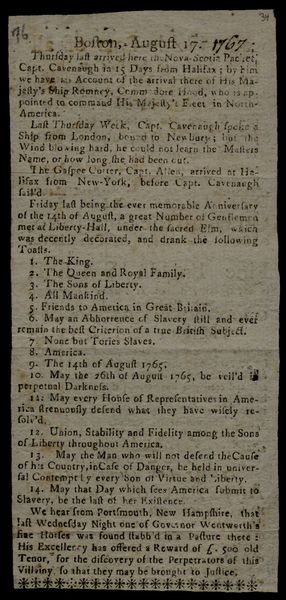 76.
34
Boston, August 17. 1767.
Thursday last arrived here the Nova-Scotia Packet,
Capt. Cavenaugh in 15 Days from Halifax; by him
we have an Account of the arrival there of His Ma-
jesty's Ship Romney, Commodore Hood, who is ap-
pointed to command His Majesty's Fleet in North-
America.
Last Thursday Week, Capt. Cavenaugh spoke a
Ship from London, bound to Newbury; but the
Wind blowing hard, he could not learn the Masters
Name, or how long she had been out.
The Gaspee Cutter, Capt. Allen, arrived at Ha-
lifax from New-York, before Capt. Cavenaugh
sail'd.
Friday last being the ever memorable Anniversary
of the 14th of August, a great Number of Gentlemen
met at Liberty-Hall, under the sacred Elm, which
was decently decorated, and drank the following
Toasts.
1. The King.
2. The Queen and Royal Family.
3. The Sons of Liberty.
4. All Mankind.
5. Friends to America in Great Britain.
6. May an Abhorrence of Slavery still and ever
remain the best Criterion of a true British Subject.
7. None but Tories Slaves.
8. America.
9. The 14th of August 1765.
10. May the 26th of August 1765, be veil'd in
perpetual Darkness.
11. May every House of Representatives in Ame-
rica strenuously defend what they have wisely re-
solv'd.
12. Union, Stability and Fidelity among the Sons
of Liberty throughout America.
13. May the Man who will not defend the Cause
of his Country, in Case of Danger, be held in univer-
sal Contempt by every Son of Virtue and Liberty.
14. May that Day which sees America submit to
Slavery, be the last of her Existence.
We hear from Portsmouth, New Hampshire, that
last Wednesday Night one of Governor Wentworth's
fine Horses was found stabb'd in a Pasture there:
His Excellency has offered a Reward of £. 500 old
Tenor, for the discovery of the Perpetrators of this
Villainy, so that they may be brought to Justice.